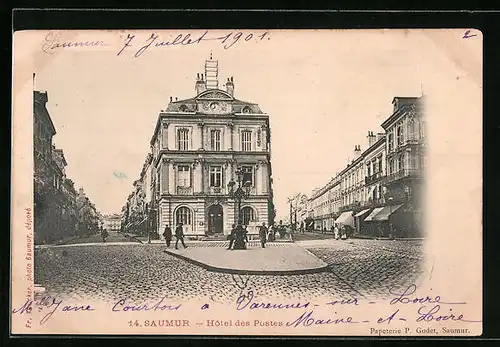 Saumur 7 Juillet 1901. 2
14. SAUMUR — Hôtel des Postes
Mlle Jane Courtois à Varennes-sur-Loire
Maine-et-Loire
Papeterie P. Godet, Saumur.
photo Saumur, déposé